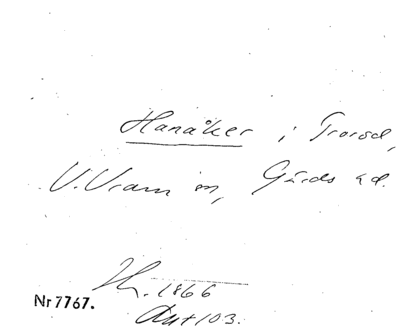 Hanåker i Trorod,
V. Vram sn, Gärds hd.
1866
Nr 7767.
Ant 103.